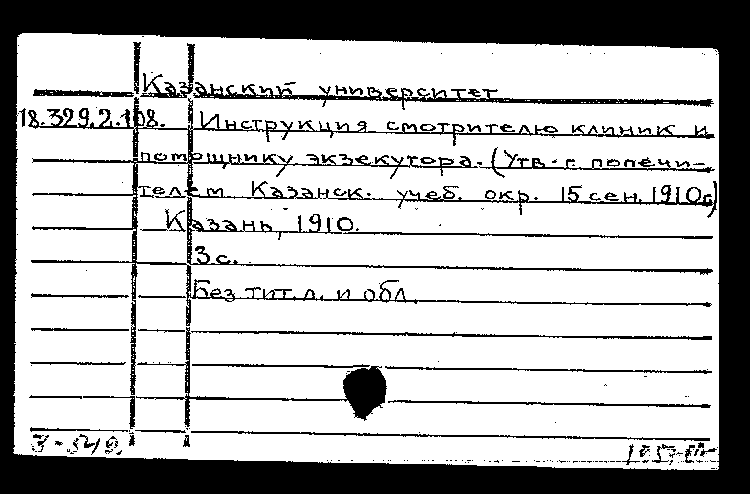 Казанский университет
18.329.2.108. Инструкция смотрителю клиник и
помощнику экзекутора. (Утв. г. попечи-
телем Казанск. учеб. окр. 15 сен. 1910г)
Казань, 1910.
3 с.
Без тит. л. и обл.
3-549.